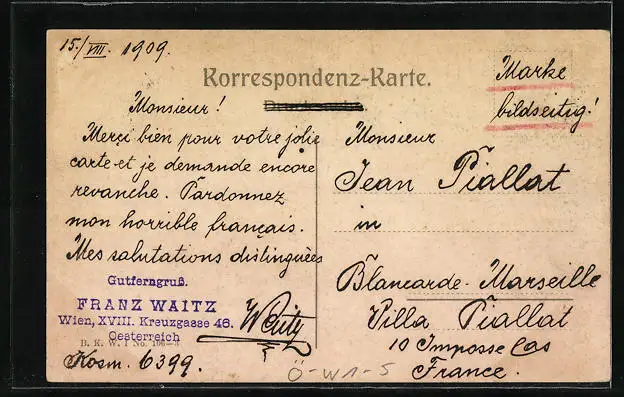 15./VIII. 1909.
Korrespondenz-Karte.
Marke
bildseitig!
Monsieur!
Merçi bien pour votre jolie
carte et je demande encore
revanche. Pardonnez
mon horrible français.
Mes salutations distinguées
Gutferngruß.
FRANZ WAITZ
Wien, XVIII. Kreuzgasse 46.
Oesterreich
B. K. W. I No. 106-8
Kosm. 6399.
Waitz
Monsieur
Jean Piallat
in
Blancarde-Marseille
Villa Piallat
10 Imposse Cas
France.
Ö-W1-5